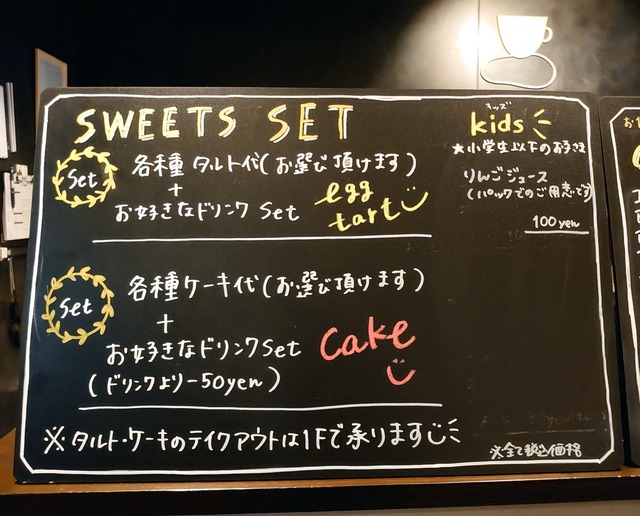 SWEETS SET
Set
各種 タルト代(お選び頂けます)
+
お好きなドリンク Set
egg
tart
Set
各種ケーキ代(お選び頂けます)
+
お好きなドリンクSet
(ドリンクより-50yen)
cake
※タルト・ケーキのテイクアウトは1Fで承ります
キッズ
kids
★小学生以下のお子さま
りんごジュース
(パックでのご用意です)
100yen
※全て税込価格